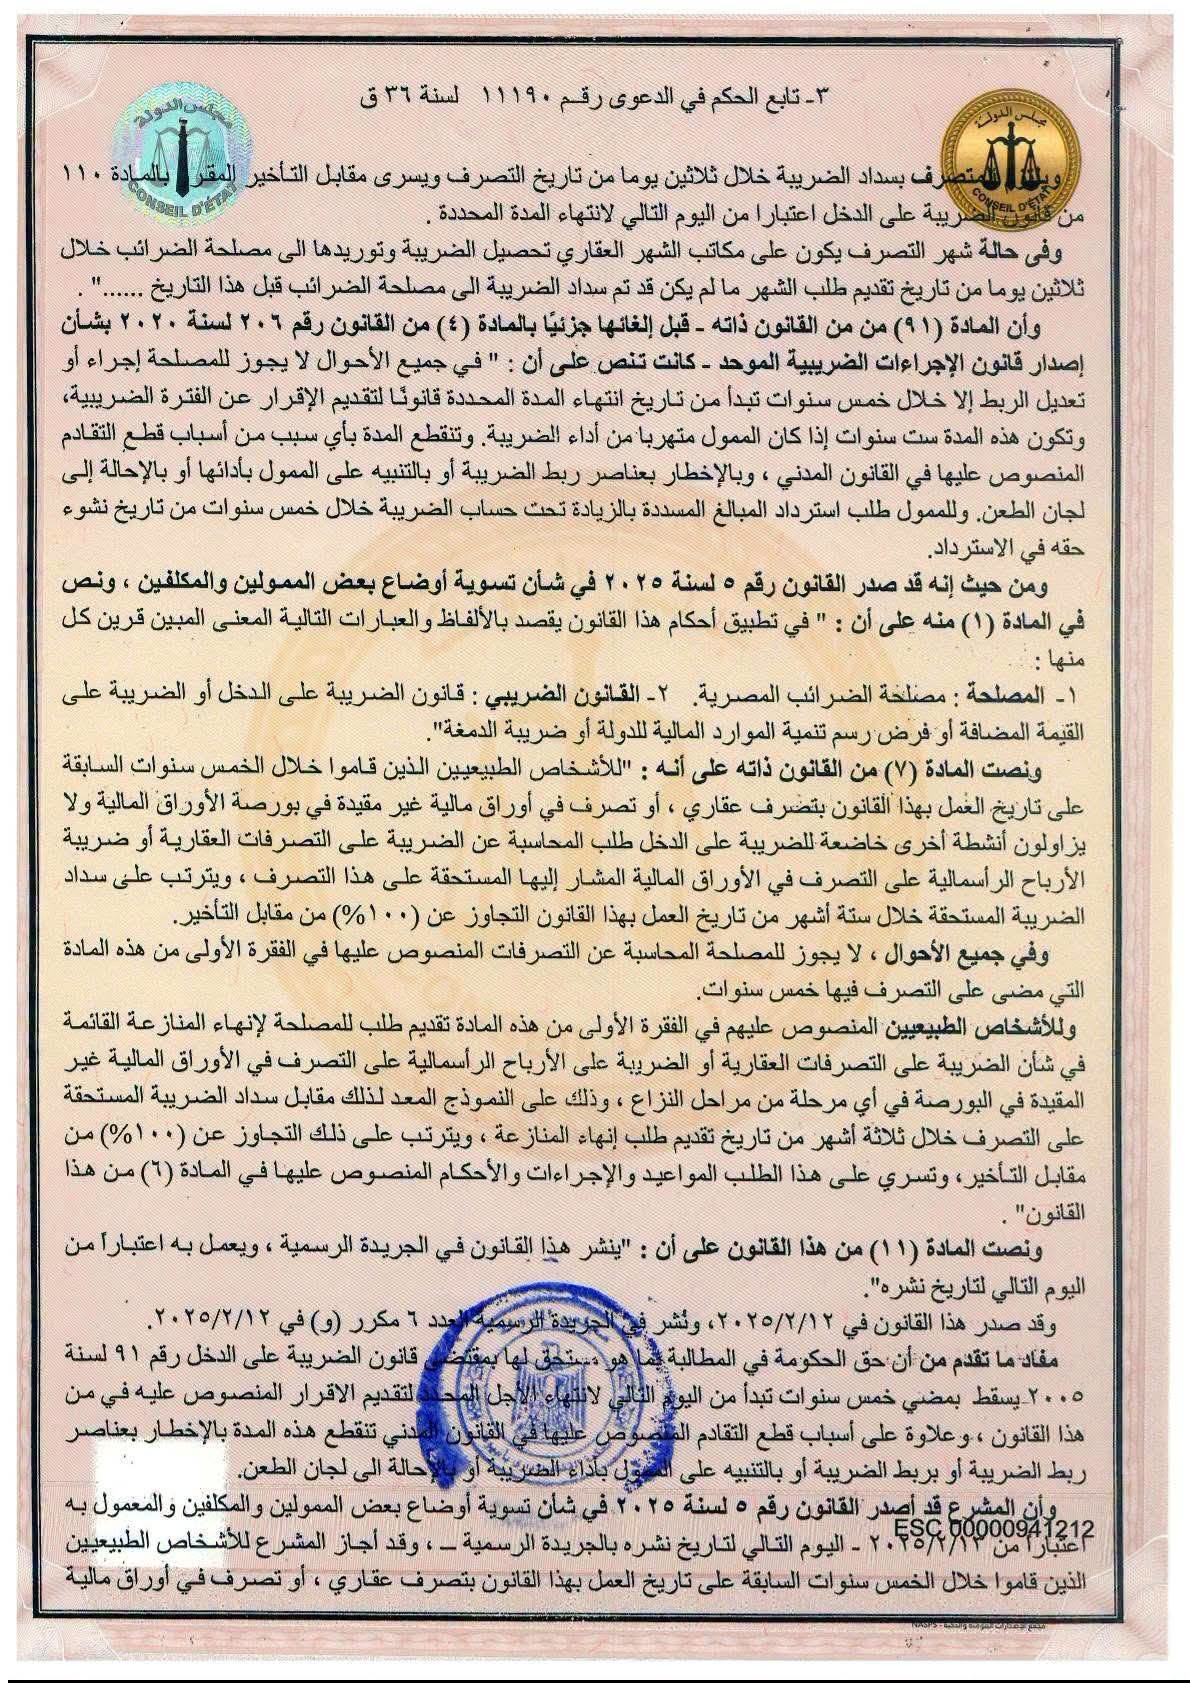 ٣- تابع الحكم في الدعوى رقم ١١١٩٠ لسنة ٣٦ ق
مجلس الدولة
CONSEIL D'ÉTAT
مجلس الدولة
CONSEIL D'ÉTAT
ويلتزم المتصرف بسداد الضريبة خلال ثلاثين يوما من تاريخ التصرف ويسرى مقابل التأخير المقرر بالمادة ١١٠
من قانون الضريبة على الدخل اعتبارا من اليوم التالي لانتهاء المدة المحددة .
وفى حالة شهر التصرف يكون على مكاتب الشهر العقاري تحصيل الضريبة وتوريدها الى مصلحة الضرائب خلال
ثلاثين يوما من تاريخ تقديم طلب الشهر ما لم يكن قد تم سداد الضريبة الى مصلحة الضرائب قبل هذا التاريخ ......" .
وأن المادة (٩١) من من القانون ذاته - قبل إلغائها جزئيًا بالمادة (٤) من القانون رقم ٢٠٦ لسنة ٢٠٢٠ بشأن
إصدار قانون الإجراءات الضريبية الموحد - كانت تنص على أن : " في جميع الأحوال لا يجوز للمصلحة إجراء أو
تعديل الربط إلا خلال خمس سنوات تبدأ من تاريخ انتهاء المدة المحددة قانونًا لتقديم الإقرار عن الفترة الضريبية،
وتكون هذه المدة ست سنوات إذا كان الممول متهربا من أداء الضريبة. وتنقطع المدة بأي سبب من أسباب قطع التقادم
المنصوص عليها في القانون المدني ، وبالإخطار بعناصر ربط الضريبة أو بالتنبيه على الممول بأدائها أو بالإحالة إلى
لجان الطعن. وللممول طلب استرداد المبالغ المسددة بالزيادة تحت حساب الضريبة خلال خمس سنوات من تاريخ نشوء
حقه في الاسترداد.
ومن حيث إنه قد صدر القانون رقم ٥ لسنة ٢٠٢٥ في شأن تسوية أوضاع بعض الممولين والمكلفين ، ونص
في المادة (١) منه على أن : " في تطبيق أحكام هذا القانون يقصد بالألفاظ والعبارات التالية المعنى المبين قرين كل
منها :
١- المصلحة : مصلحة الضرائب المصرية. ٢- القانون الضريبي : قانون الضريبة على الدخل أو الضريبة على
القيمة المضافة أو فرض رسم تنمية الموارد المالية للدولة أو ضريبة الدمغة".
ونصت المادة (٧) من القانون ذاته على أنه : "للأشخاص الطبيعيين الذين قاموا خلال الخمس سنوات السابقة
على تاريخ العمل بهذا القانون بتصرف عقاري ، أو تصرف في أوراق مالية غير مقيدة في بورصة الأوراق المالية ولا
يزاولون أنشطة أخرى خاضعة للضريبة على الدخل طلب المحاسبة عن الضريبة على التصرفات العقارية أو ضريبة
الأرباح الرأسمالية على التصرف في الأوراق المالية المشار إليها المستحقة على هذا التصرف ، ويترتب على سداد
الضريبة المستحقة خلال ستة أشهر من تاريخ العمل بهذا القانون التجاوز عن (١٠٠%) من مقابل التأخير.
وفي جميع الأحوال ، لا يجوز للمصلحة المحاسبة عن التصرفات المنصوص عليها في الفقرة الأولى من هذه المادة
التي مضى على التصرف فيها خمس سنوات.
وللأشخاص الطبيعيين المنصوص عليهم في الفقرة الأولى من هذه المادة تقديم طلب للمصلحة لإنهاء المنازعة القائمة
في شأن الضريبة على التصرفات العقارية أو الضريبة على الأرباح الرأسمالية على التصرف في الأوراق المالية غير
المقيدة في البورصة في أي مرحلة من مراحل النزاع ، وذلك على النموذج المعد لذلك مقابل سداد الضريبة المستحقة
على التصرف خلال ثلاثة أشهر من تاريخ تقديم طلب إنهاء المنازعة ، ويترتب على ذلك التجاوز عن (١٠٠%) من
مقابل التأخير، وتسري على هذا الطلب المواعيد والإجراءات والأحكام المنصوص عليها في المادة (٦) من هذا
القانون" .
ونصت المادة (١١) من هذا القانون على أن : "ينشر هذا القانون في الجريدة الرسمية ، ويعمل به اعتباراً من
اليوم التالي لتاريخ نشره".
وقد صدر هذا القانون في ٢٠٢٥/٢/١٢، ونُشر في الجريدة الرسمية العدد ٦ مكرر (و) في ٢٠٢٥/٢/١٢.
مفاد ما تقدم من أن حق الحكومة في المطالبة بما هو مستحق لها بمقتضى قانون الضريبة على الدخل رقم ٩١ لسنة
٢٠٠٥ يسقط بمضي خمس سنوات تبدأ من اليوم التالي لانتهاء الأجل المحدد لتقديم الاقرار المنصوص عليه في من
هذا القانون ، وعلاوة على أسباب قطع التقادم المنصوص عليها في القانون المدني تنقطع هذه المدة بالإخطار بعناصر
ربط الضريبة أو بربط الضريبة أو بالتنبيه على الممول بأداء الضريبة أو بالإحالة الى لجان الطعن.
وأن المشرع قد أصدر القانون رقم ٥ لسنة ٢٠٢٥ في شأن تسوية أوضاع بعض الممولين والمكلفين والمعمول به
ESC 00000941212
اعتباراً من ٢٠٢٥/٢/١٣ - اليوم التالي لتاريخ نشره بالجريدة الرسمية – ، وقد أجاز المشرع للأشخاص الطبيعيين
الذين قاموا خلال الخمس سنوات السابقة على تاريخ العمل بهذا القانون بتصرف عقاري ، أو تصرف في أوراق مالية
NASPS